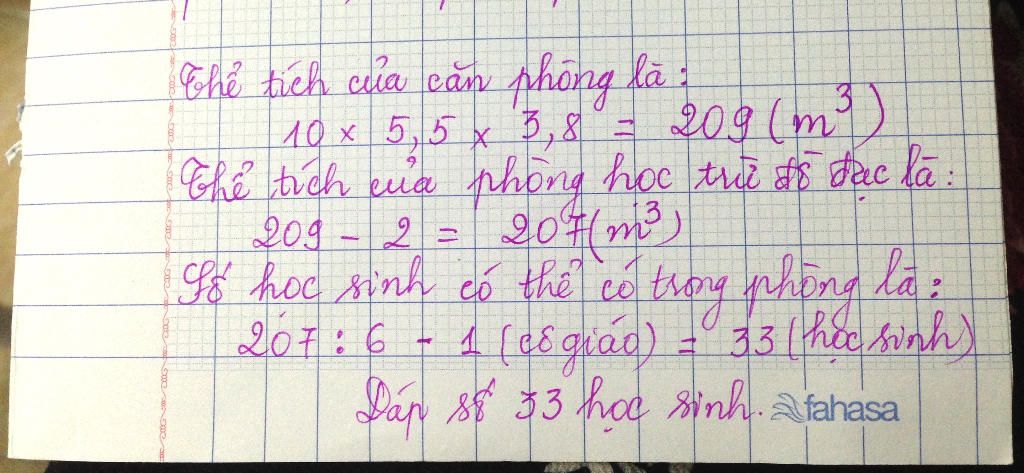 Thể tích của căn phòng là:
10 × 5,5 × 3,8 = 209 (m³)
Thể tích của phòng học trừ đồ đạc là:
209 - 2 = 207 (m³)
Số học sinh có thể có trong phòng là:
207 : 6 - 1 (cô giáo) = 33 (học sinh)
Đáp số 33 học sinh.
fahasa